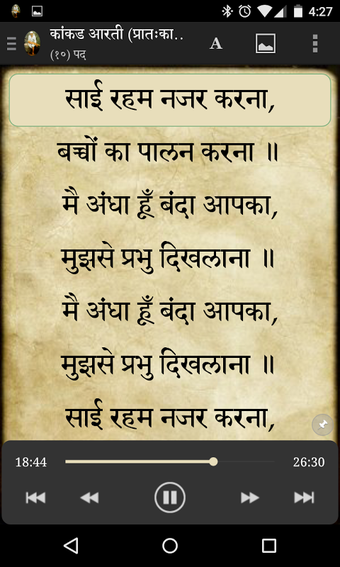 4:27
कांकड आरती (प्रातःका..
(१०) पद
A
साई रहम नजर करना,
बच्चों का पालन करना ॥
मै अंधा हूँ बंदा आपका,
मुझसे प्रभु दिखलाना ॥
मै अंधा हूँ बंदा आपका,
मुझसे प्रभु दिखलाना ॥
साई रहम नजर करना,
18:44
26:30